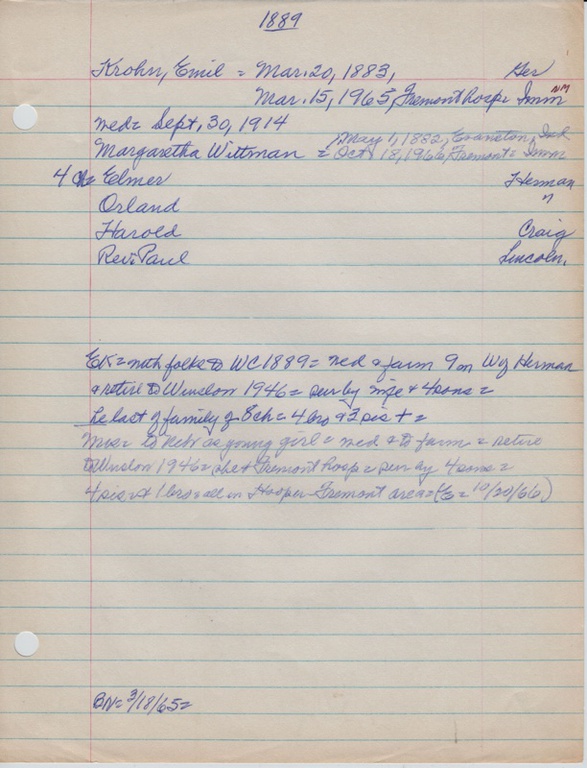 1889
Krohn, Emil = Mar. 20, 1883, Ger
Mar. 15, 1965, Fremont hosp = Imm NM
med = Sept, 30, 1914
Margaretha Wittman = May 1, 1882, Evanston, Ind
Oct 18, 1966, Fremont = Imm
4 ch = Elmer Herman
Orland "
Harold Craig
Rev. Paul Lincoln.
EK = with folks to WC 1889 = med & farm 9 m W of Herman
& retire to Winslow 1946 = sur by wife & 4 sons =
he last of family of 8 ch = 4 bro & 3 sis + =
Mrs = to Neb as young girl = med & to farm = retire
to Winslow 1946 = she + Fremont hosp = sur by 4 sons =
4 sis & 1 bro = all in Hooper-Fremont area = (E = 10/20/66)
BN = 3/18/65 =